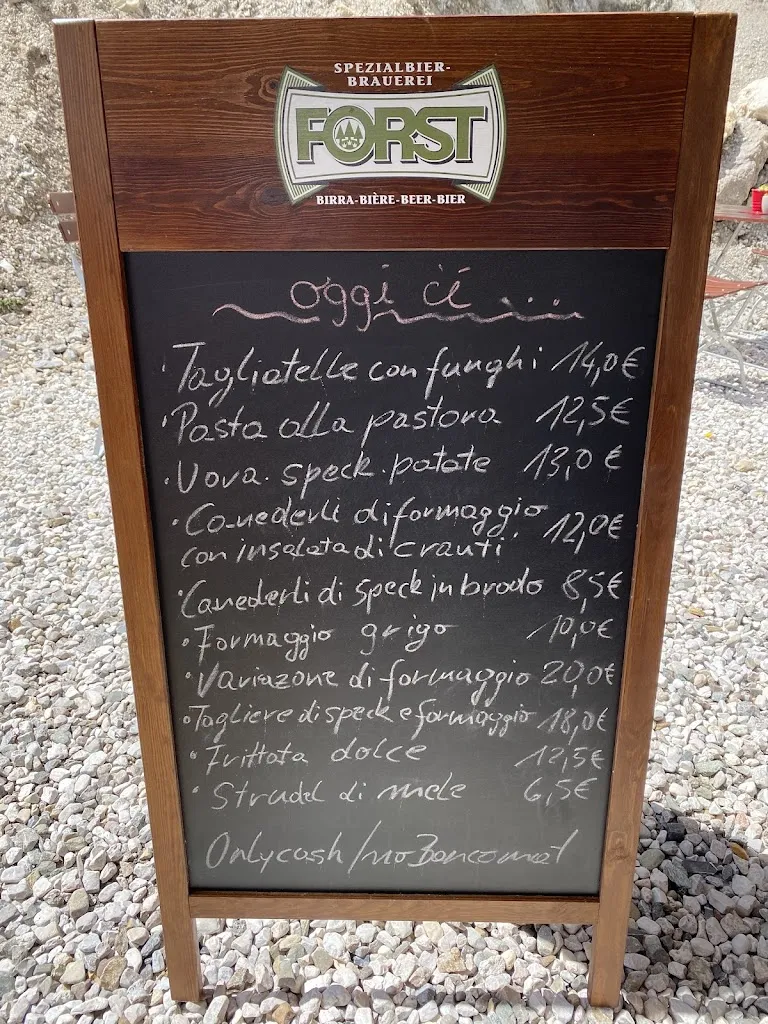 SPEZIALBIER-
BRAUEREI
FORST
BIRRA-BIÈRE-BEER-BIER
oggi c'é ...
· Tagliatelle con funghi 14,0€
· Pasta alla pastora 12,5€
· Uova. speck. patate 13,0€
· Canederli di formaggio
con insalata di crauti 12,0€
· Canederli di speck in brodo 8,5€
· Formaggio grigo 10,0€
· Variazone di formaggio 20,0€
· Tagliere di speck e formaggio 18,0€
· Frittata dolce 12,5€
· Strudel di mele 6,5€
Only cash / no Bancomat